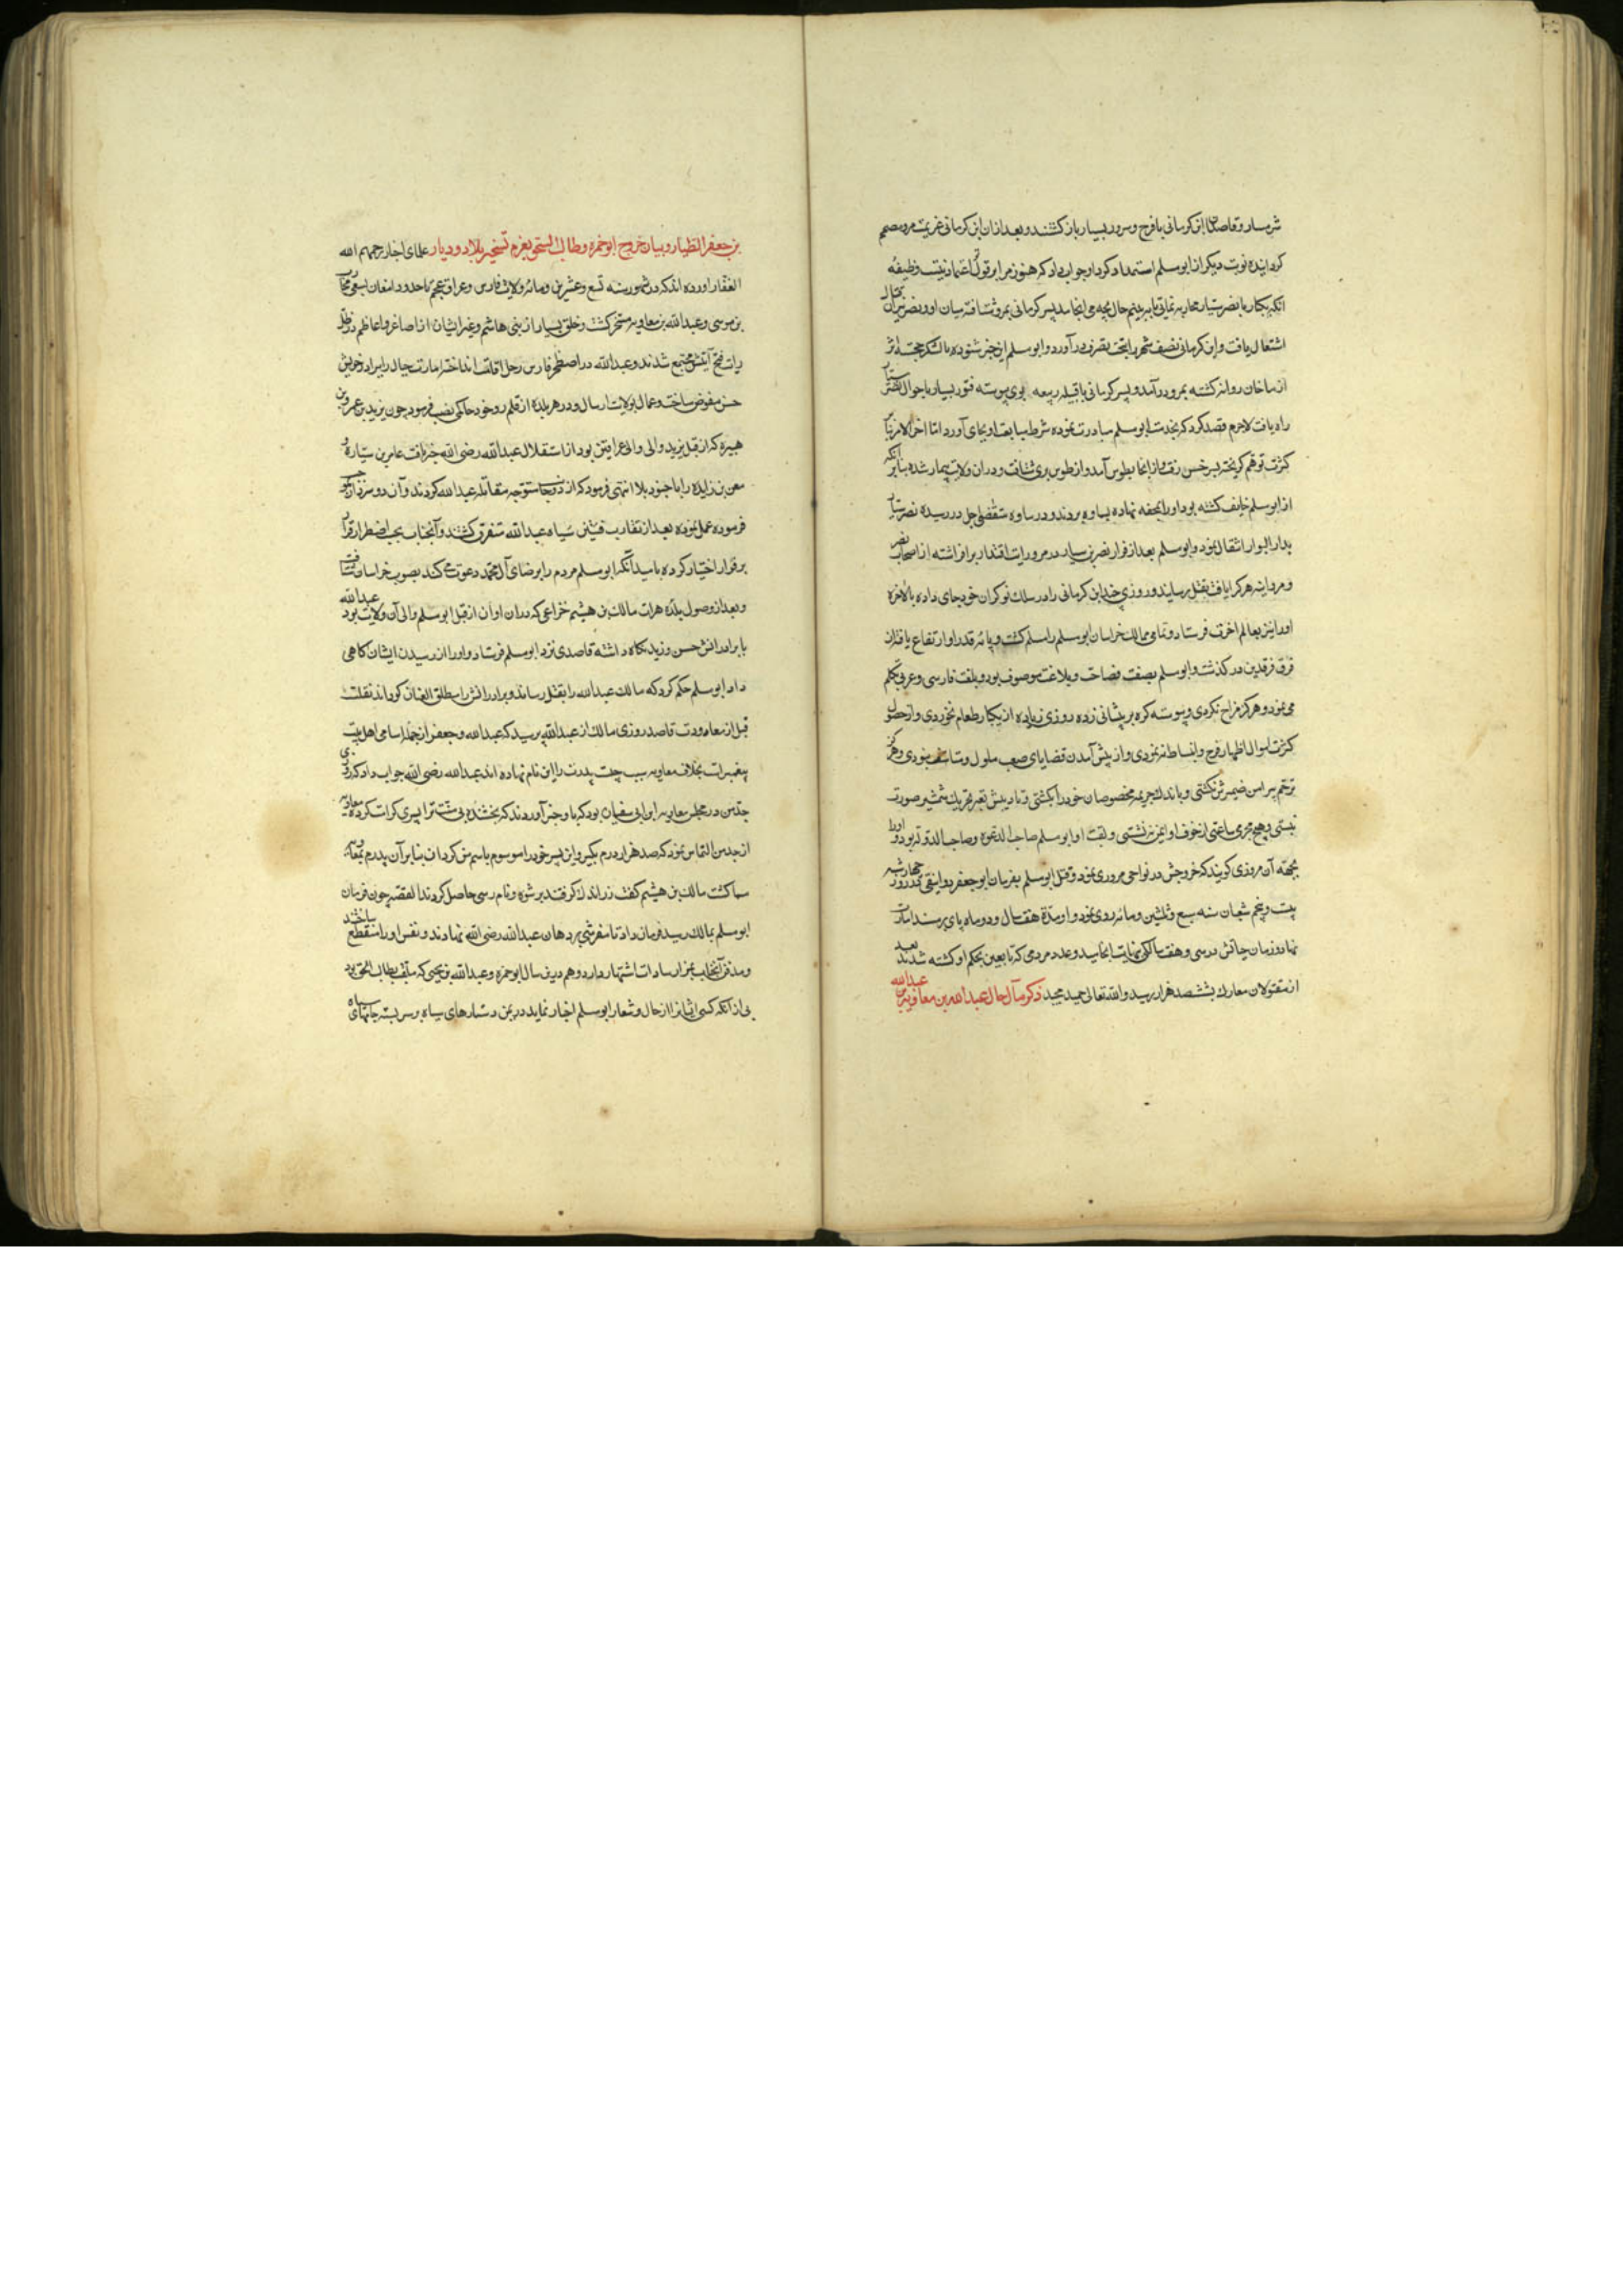 شرمسار و قاصدان ابن کرمانی با فرح و سرور بسیار بازگشتند و بعد از ان ابن کرمانی عزیمت مرو مصمم
کردانیده نوبت دیکر از ابومسلم استمداد کرد او جواب داد که هنوز مرا بر قول تو اعتماد نیست وظیفه
انکه یکبار با نصر سیار محاربه نمائی تا ببینم حال بچه می انجامد پسر کرمانی بمرو شتافته میان او و نصر نیران قتال
اشتعال یافت و ابن کرمانی نصف شهر را بتحت تصرف درآورد و ابومسلم این خبر شنوده با لشکر
از ماخان روانه کشته بمرو درآمد و پسر کرمانی با قبیله ربیعه بوی پیوسته فتور بسیار باحوال نصر سیار
راه یافت لاجرم قصد کرد که بخدمت ابومسلم مبادرت نموده شرط مبایعت او بجای آورد اما اخر الامر بنابر
کثرت توهم کریخته بسرخس رفت و از انجا بطوس آمد و از طوس بری شتافت و دران ولایت بیمار شده بنابر انکه
از ابومسلم خایف کشته بود او را بمحفه نهاده بساوه بردند و در ساوه متقضی اجل دررسیده نصر سیار
بدار البوار انتقال نمود و ابومسلم بعد از فرار نصر بن سیار در مرو رایت اقتدار برافراشته از اصحاب نصر
و مروانیه هر کرا یافت بقتل رسانید و روزی چند ابن کرمانی را در سلک نوکران خود جای داده بالاخره
او را نیز بعالم اخرت فرستاد و تمامی ممالک خراسان ابومسلم را مسلم کشت و پایه قدر او ارتفاع یافته از
فرق فرقدین درگذشت و ابومسلم بصفت فصاحت و بلاغت موصوف بود و بلغت فارسی و عربی تکلم
می نمود و هرکز مزاح نکردی و پیوسته کره بر پیشانی زده روزی زیاده از یکبار طعام نخوردی و از حصول
کثرت اموال اظهار فرح و انبساط ننمودی و از پیش آمدن قضایای صعب ملول و متاسف نبودی و هرکز
ترحم پیرامن ضمیرش نکشتی و باندک جریمه مخصوصان خود را بکشتی و تادیبش بغیر تحریک شمشیر صورت
نبستی و هیچ مجرمی ساعتی از خوف او ایمن ننشستی و لقب او ابومسلم صاحب الدعوه و صاحب الدوله بود و او را
بجهة آن مروزی کویند که خروجش در نواحی مرو روی نمود و قتل ابومسلم بفرمان ابوجعفر دوانیقی در روز چهارشنبه
بیست و پنجم شعبان سنه سبع و ثلثین و مائه روی نمود و او مدة هفت سال و دو ماه پای بر مسند امارت
نهاد و زمان حیاتش در سی و هفت سالکی بنهایت انجامید و عدد مردمی که تابعین بحکم او کشته شدند بعد
از مقتولان معارک بششصد هزار رسید والله تعالی حمید مجید ذکر مآل حال عبدالله بن معاویه بن عبدالله
بن جعفر الطیار و بیان خروج ابوحمزه و طالب الحق بعزم تسخیر بلاد و دیار علمای اخبار رحمهم الله
الغفار اورده اند که در شهور سنه تسع و عشرین و مائه ولایت فارس و عراق عجم تا حدود دامغان بسعی محارب
بن موسی و عبدالله بن معاویه مسخر کشت و خلق بسیار از بنی هاشم و غیر ایشان از اصاغر و اعاظم در ظل
رایت فتح آیتش مجتمع شدند و عبدالله در اصطخر فارس رحل اقامت انداخته امارت جبال را ببرادر خویش
حسن مفوض ساخت و عمال بولایات ارسال و در هر بلده از قلمرو خود حاکمی نصب فرمود چون یزید بن عمرو بن
هبیره که از قبل یزید والی والی عراقین بود از استقلال عبدالله رضی الله خبر یافت عامر بن
معن بن زایده را با جنود بلا انتهی فرمود که از دو جا متوجه مقاتله عبدالله کردند و آن دو سردار بموجب
فرموده عمل نموده بعد از تقارب فئتین سپاه عبدالله متفرق کشتند و آنجناب بحسب اضطرار فرار
بر قرار اختیار کرده بامید آنکه ابومسلم مردم را برضای آل محمد دعوت می کند بصوب خراسان شتافت
و بعد از وصول بلده هرات مالک بن هیثم خزاعی که دران اوان از قبل ابومسلم والی آن ولایت بود عبدالله
با برادرانش حسن و یزید نکاه داشته قاصدی نزد ابومسلم فرستاد و او را از رسیدن ایشان کاهی
داد ابومسلم حکم کرد که مالک عبدالله را بقتل رساند و برادرانش را مطلق العنان کرداند نقلست
قبل از معاودت قاصد روزی مالک از عبدالله پرسید که عبدالله و جعفر از جمله اسامی اهل بیت
پیغمبرات بخلاف معاویه سبب چیست پدرت را این نام نهاده اند عبدالله رضی الله جواب داد که روزی
جد من در مجلس معاویه ابن ابی سفیان بود که باو خبر آوردند که بخشنده بی منت ترا پسری کرامت کرده معاویه
از جد من التماس نمود که صد هزار درم بکیر و این پسر خود را موسوم باسم من کردان بنابر آن پدرم بمعاویه
مسما کشت مالک بن هیثم کفت زر اندک کرفتند برشوه و نام رسمی حاصل کردند القصه چون فرمان
ابومسلم بمالک رسید فرمان داد تا مفرشی بر دهان عبدالله رضی الله نهادند و نفس او را منقطع ساختند
و مدفن آنجناب بمزار سادات اشتهار دارد و هم درین سال ابوحمزه و عبدالله بن یحیی که ملقب بطالب الحق بود
بی از انکه کسی ایشانرا از حال و شعار ابومسلم اخبار نماید در یمن دستارهای سیاه بر سر بسته جامهای سیاه